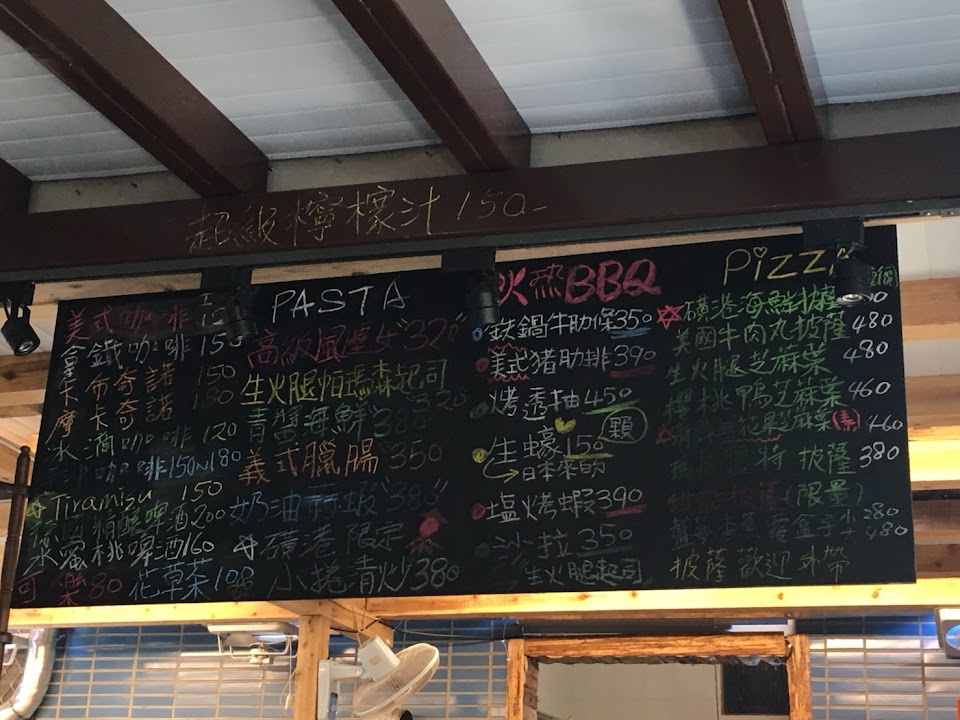 超級檸檬汁150-
美式咖啡
拿鐵咖啡 150
卡布奇諾 150
摩卡奇諾 180
冰滴咖啡 120
咖啡150~180
Tiramisu 150
精釀啤酒200
水蜜桃啤酒160
可樂80 花草茶
PASTA
高級風 320
生火腿帕瑪森起司
320
青醬海鮮 380
義式臘腸 350
奶油蒜蝦 380
磺港限定
小捲清炒 380
火熱BBQ
鉄鍋牛肋條350
美式豬肋排390
烤透抽450
生蠔150 顆
日本來的
塩烤蝦390
沙拉350
生火腿起司
PiZZA
磺港海鮮披薩
美國牛肉丸披薩 480
生火腿芝麻葉 480
櫻桃鴨芝麻葉 460
芝麻葉 素 460
特披薩 380
(限量)
盒子 小280
480
披薩歡迎外帶